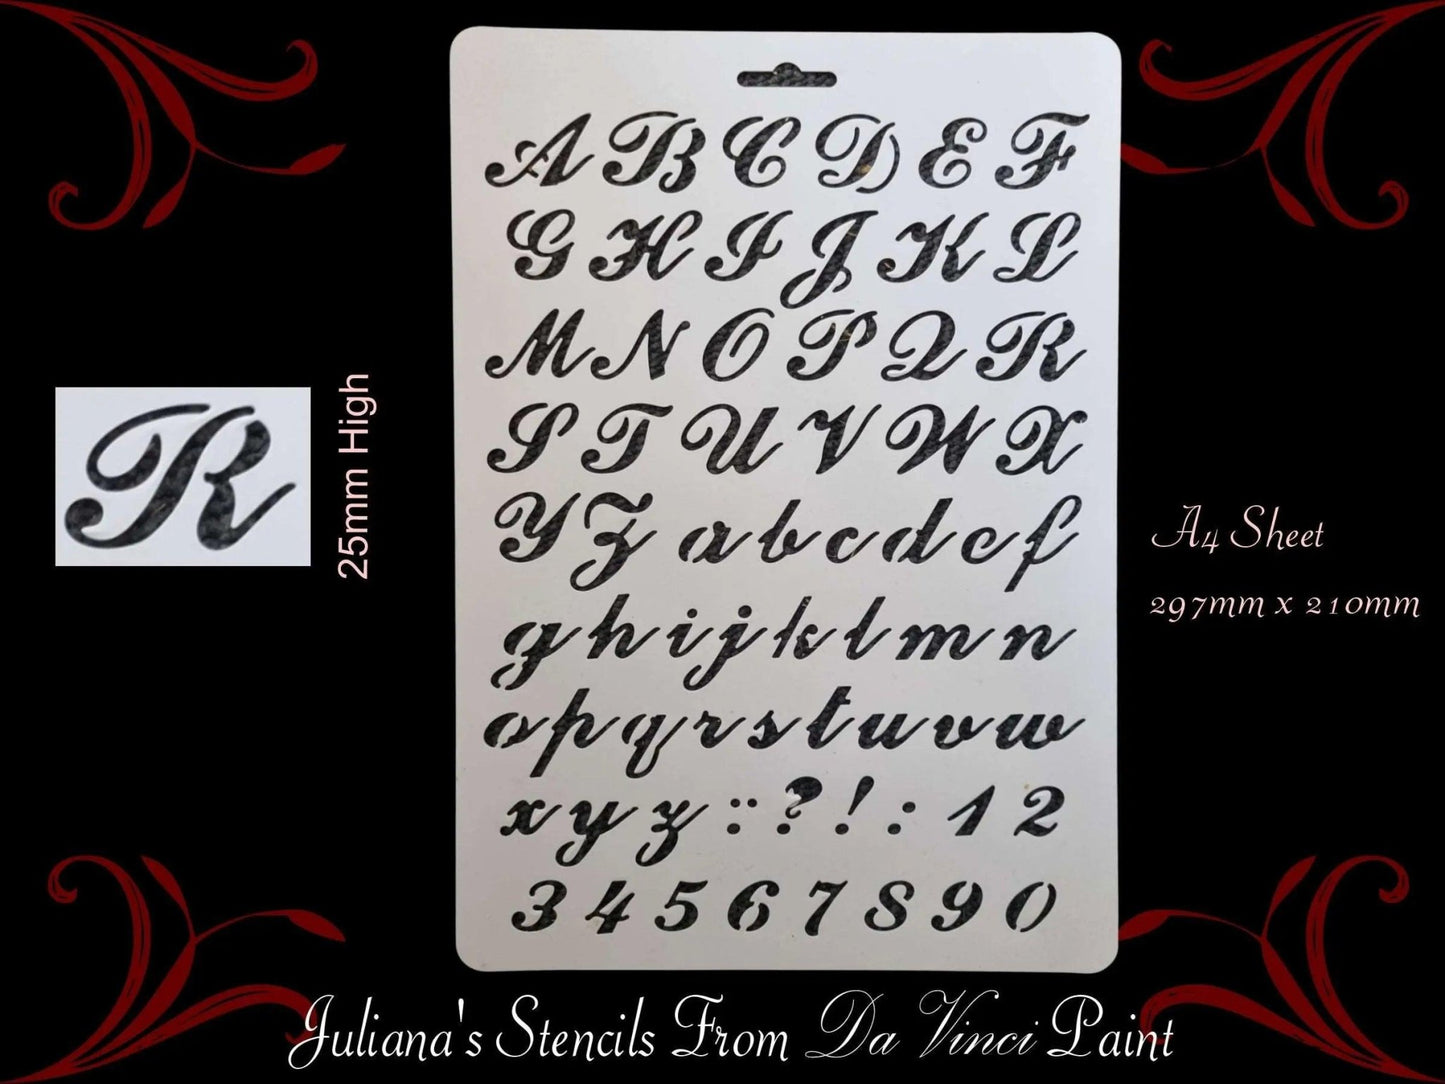 A B C D E F
G H I J K L
M N O P Q R
S T U V W X
Y Z a b c d e f
g h i j k l m n
o p q r s t u v w
x y z : : ? ! : 1 2
3 4 5 6 7 8 9 0
R
25mm High
A4 Sheet
297mm x 210mm
Juliana's Stencils From Da Vinci Paint